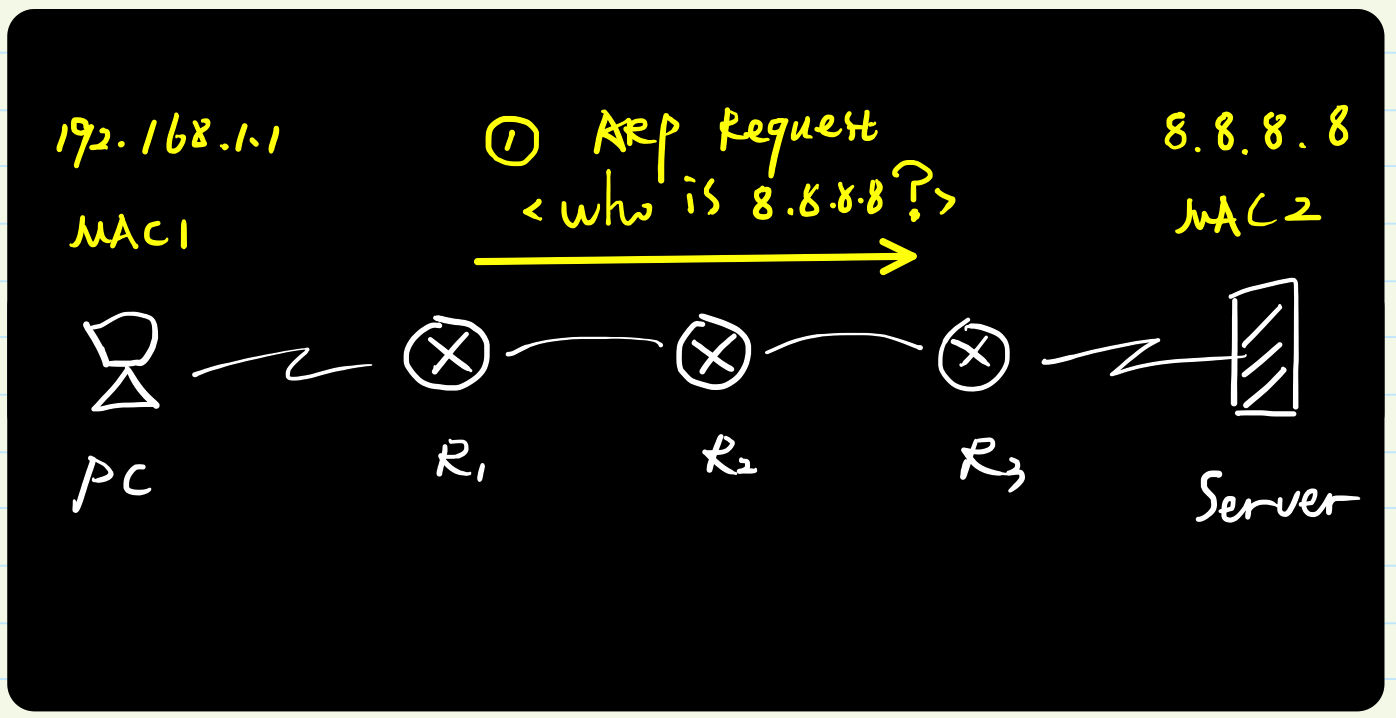 192.168.1.1
MAC1
① ARP Request
<who is 8.8.8.8?>
8.8.8.8
MAC2
PC
R1
R2
R3
Server